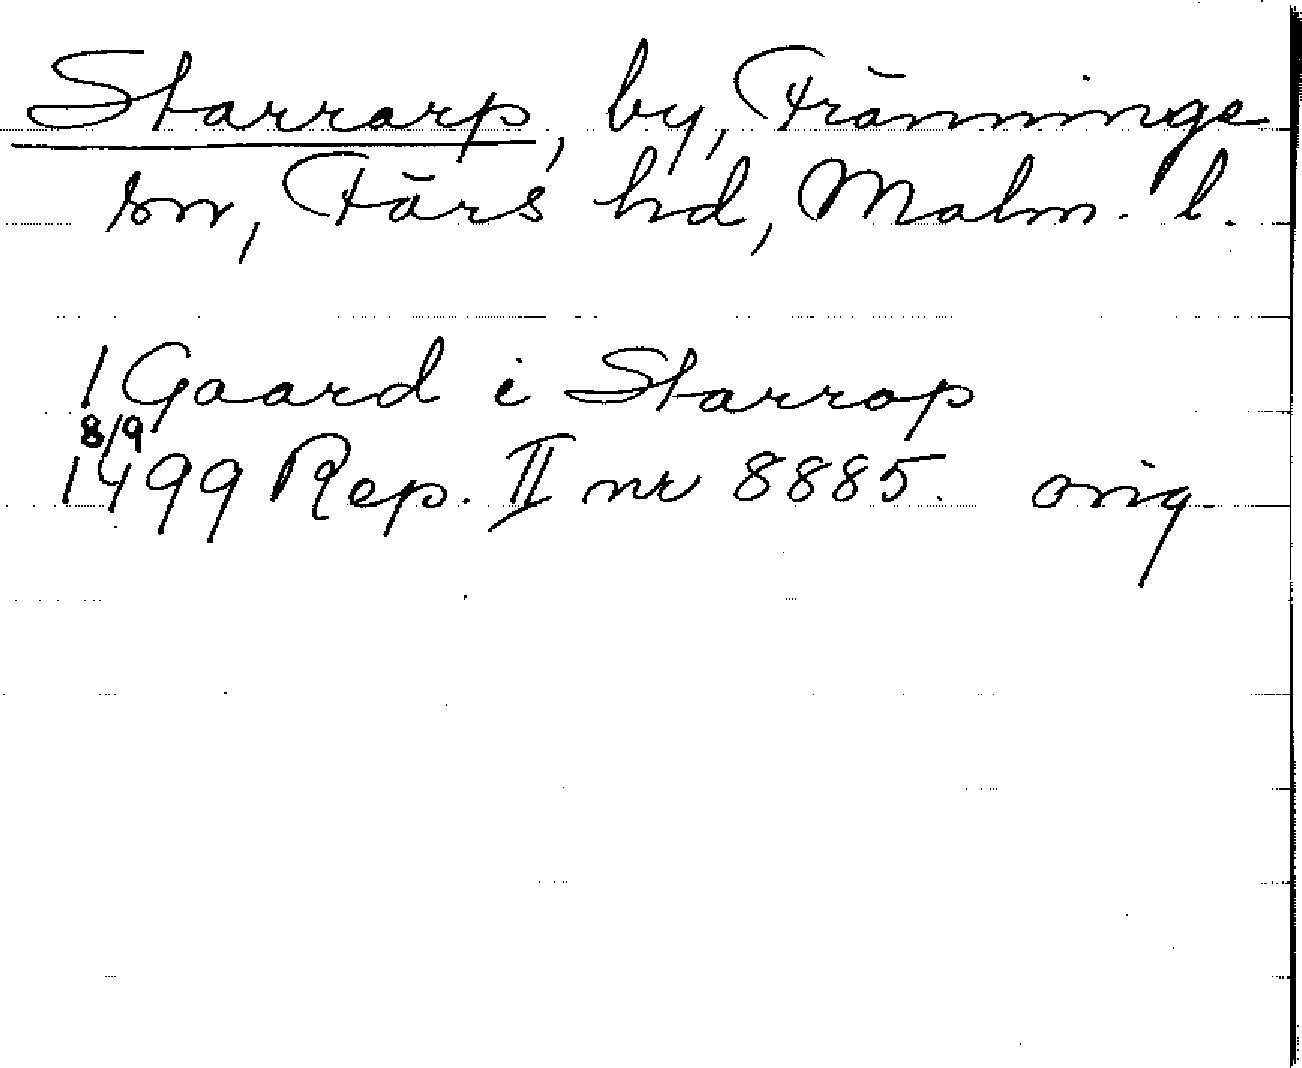 Starrarp, by, Fränninge
sn, Färs hd, Malm. l.
1 Gaard i Starrop
8/9
1499 Rep. II nr 8885. orig